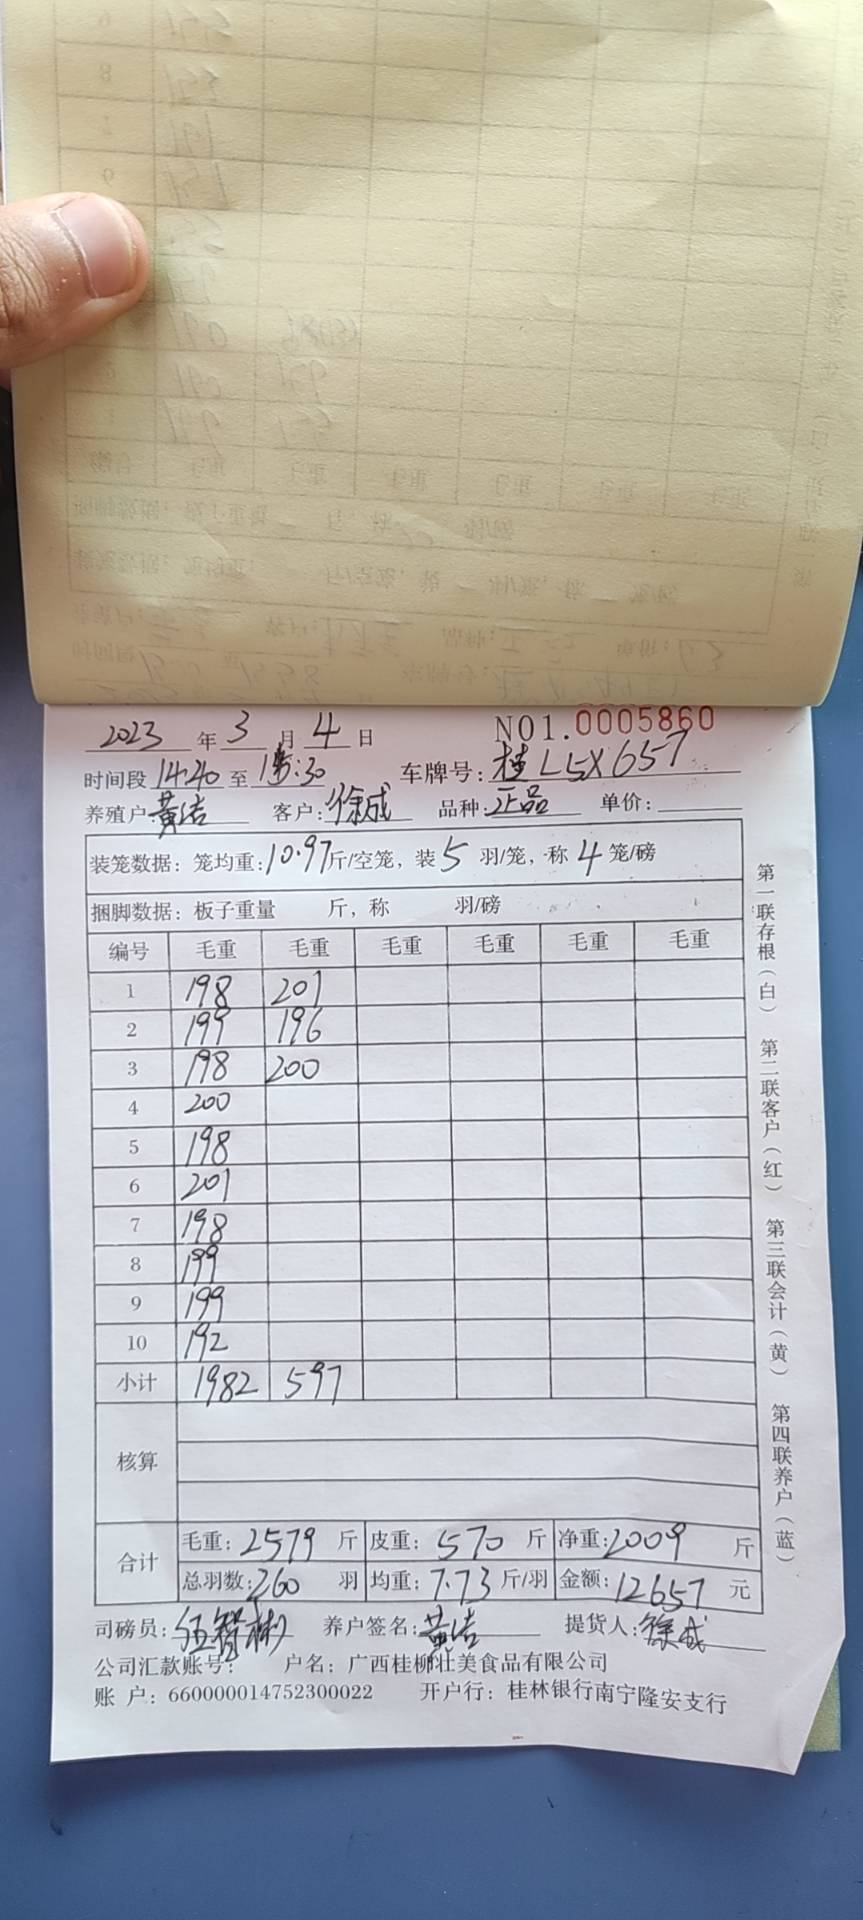 2023 年 3 月 4 日 NO1.0005860
时间段 14:20 至 15:30 车牌号: 桂L5X657
养殖户: 黄洁 客户: 徐成 品种: 正品 单价:
装笼数据: 笼均重: 10.97 斤/空笼, 装 5 羽/笼, 称 4 笼/磅
捆脚数据: 板子重量 斤, 称 羽/磅
编号 毛重 毛重 毛重 毛重 毛重 毛重
1 198 201
2 199 196
3 198 200
4 200
5 198
6 201
7 198
8 199
9 199
10 192
小计 1982 597
核算
合计 毛重: 2579 斤 皮重: 570 斤 净重: 2009 斤
总羽数: 260 羽 均重: 7.73 斤/羽 金额: 12657 元
司磅员: 伍智彬 养户签名: 黄洁 提货人: 徐成
公司汇款账号: 户名: 广西桂柳壮美食品有限公司
账 户: 660000014752300022 开户行: 桂林银行南宁隆安支行
第一联存根(白) 第二联客户(红) 第三联会计(黄) 第四联养户(蓝)